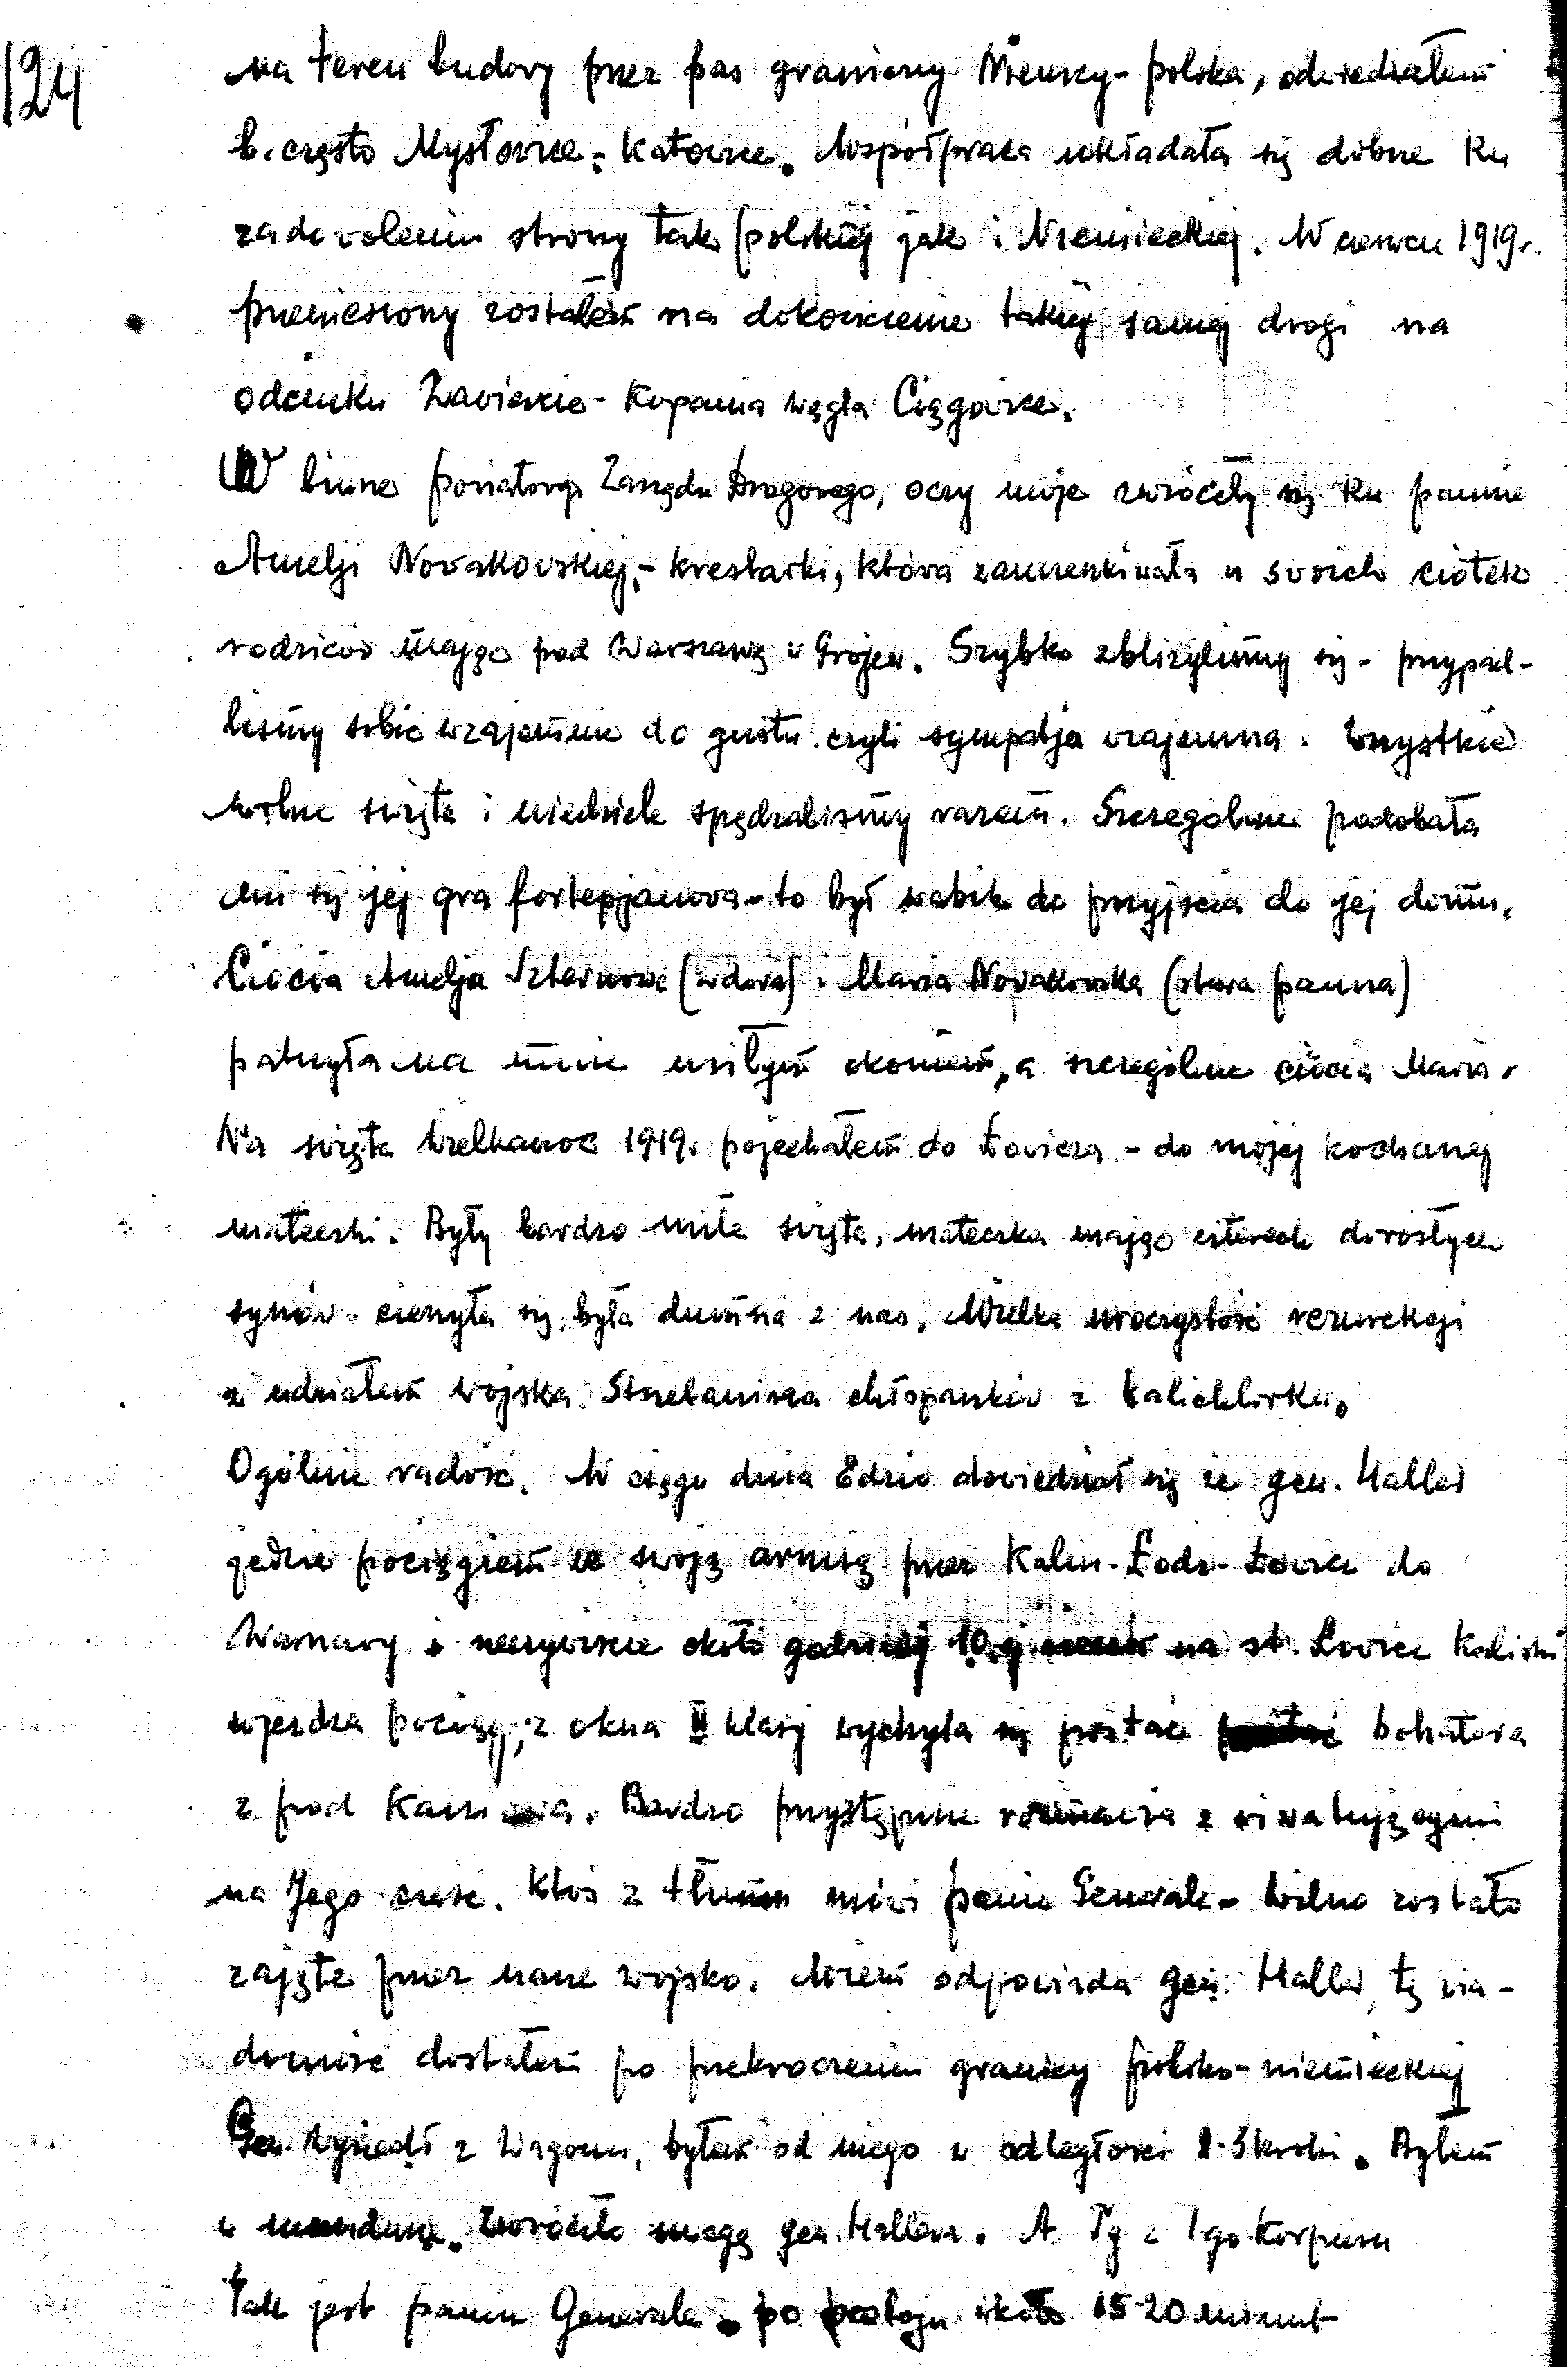 124
na teren budovy przez pas graniczny Niemcy - Polska, odwiedzałem
b. często Mysłowice - Katowice. Współpraca układała się dobrze ku
zadovoleniu strony tak polskiej jak i Niemieckiej. W czerwcu 1919 r.
przeniesiony zostałem na dokończenie takiej samej drogi na
odcinku Zawiercie - Kopania węgla Ciągowice.
W biurze powiatowego Zarządu Drogovego, oczy moje zwróciły się ku pannie
Amelji Novakovskiej, - kreslarki, która zamieszkiwała u svoich ciotek
rodziców mając pod Warszawą v Grójcu. Szybko zbliżyliśmy się - przypad-
lismy sobie wzajemnie do gustu czyli sympatja vzajemna. Wszystkie
wolne święta i niedziele spędzaliśmy razem. Szczególnie podobała
mi się jej gra fortepjanova - to był wabik do przyjścia do jej domu.
Ciocia Amelja (wdova) i Maria Novakovska (stara panna)
patrzyła na mnie okiem, a szczególnie ciocia Maria.
Na święta Wielkanoc 1919. pojechałem do Łovicza - do mojej kochanej
mateczki. Były bardzo miłe święta, mateczka mając czterech dorosłych
synów - cieszyła się, była dumna z nas. Wielka uroczystość rezurekcji
z udziałem wojska. Strzelanina chłopaków z kalichlorku.
Ogólnie radość. W ciągu dnia Edzio dowiedział się że gen. Haller
jedzie pociągiem ze swoją armią przez Kalisz - Łódź - Łovicz do
Warszavy i rzeczyvicie około godziny 10. na st. Łovicz Kaliski
wjeżdża pociąg, z okna II klasy wychyla się postać bohatera
z pod Kaniowa. Bardzo przystępnie rozmawia z wiwatującymi
na Jego cześć. Ktoś z tłumu mówi panie Generale - Wilno zostało
zajęte przez nasze wojsko. Wiem odpowiada gen. Haller, tę wia-
domość dostałem po przekroczeniu granicy polsko - niemieckiej
Gen. wysiadł z wagonu, byłem od niego w odległości 2-3 kroki. Byłem
w mundurze. Zwróciło uwagę gen. Hallera. A Ty z 1go Korpusu
Tak jest panie Generale. po postoju około 15-20 minut